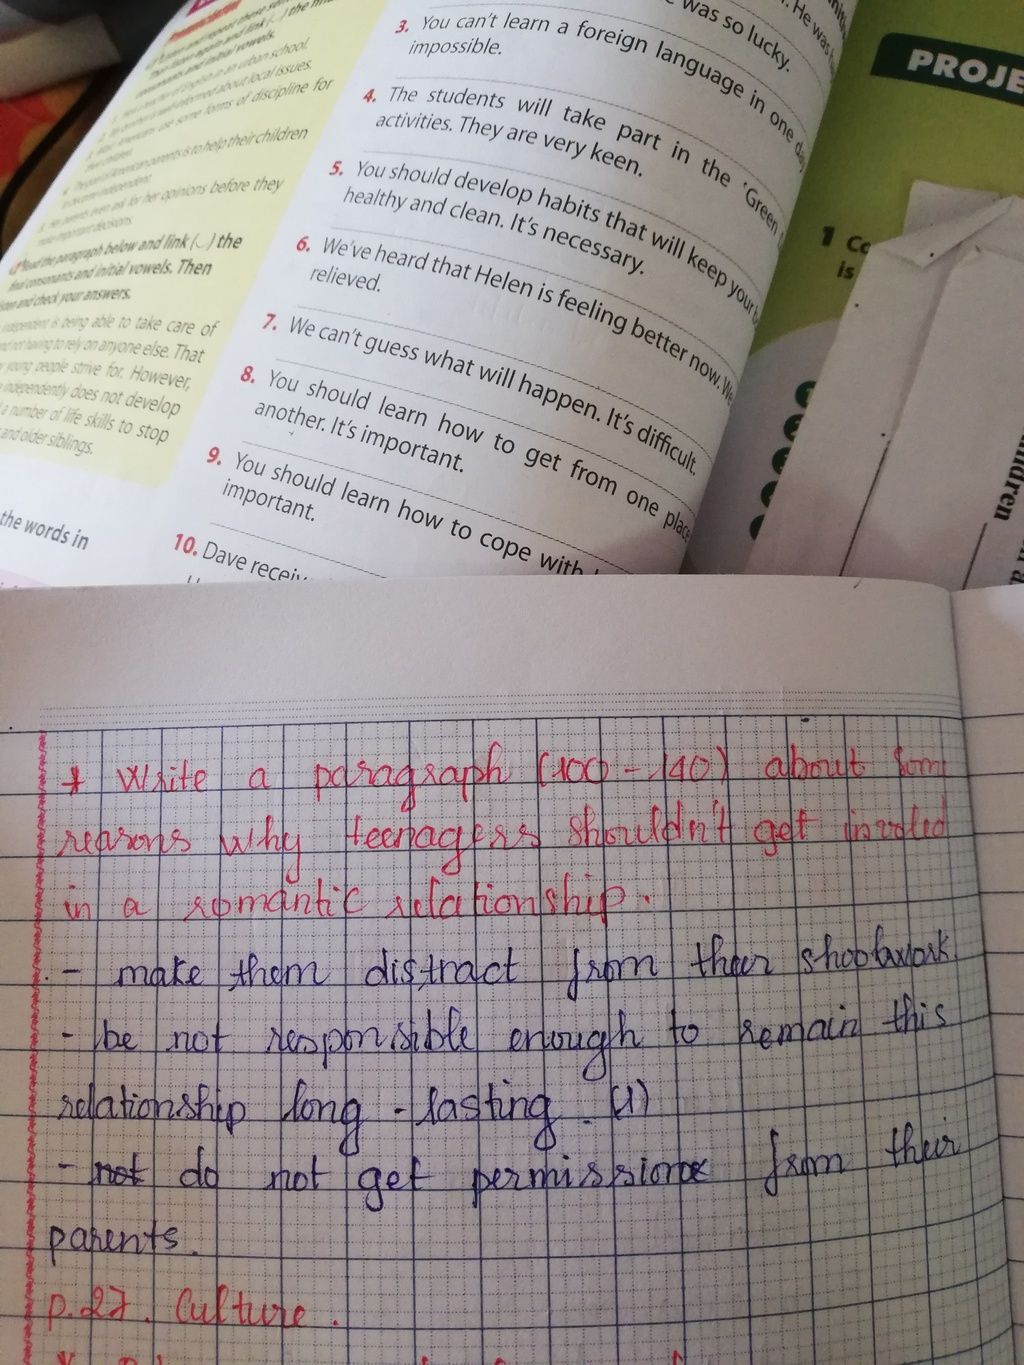 Then listen again and link (‿) the final
consonants and initial vowels.
some forms of discipline for
American parents is to help their children
parents even ask for her opinions before they
make important decisions.
Read the paragraph below and link (‿) the
final consonants and initial vowels. Then
listen and check your answers.
independent is being able to take care of
not having to rely on anyone else. That
young people strive for. However,
independently does not develop
a number of life skills to stop
and older siblings.
the words in
was so lucky.
He was
3. You can't learn a foreign language in one day
impossible.
4. The students will take part in the 'Green
activities. They are very keen.
5. You should develop habits that will keep your
healthy and clean. It's necessary.
6. We've heard that Helen is feeling better now. We
relieved.
7. We can't guess what will happen. It's difficult.
8. You should learn how to get from one place
another. It's important.
9. You should learn how to cope with
important.
10. Dave receiv
PROJE
1 Co
is
* Write a paragraph (100 - 140) about som
reasons why teenagers shouldn't get involed
in a romantic relationship.
- make them distract from their
- be not responsible enough to remain this
relationship long - lasting. (1)
- not do not get permission from their
parents.
p.27. Culture.